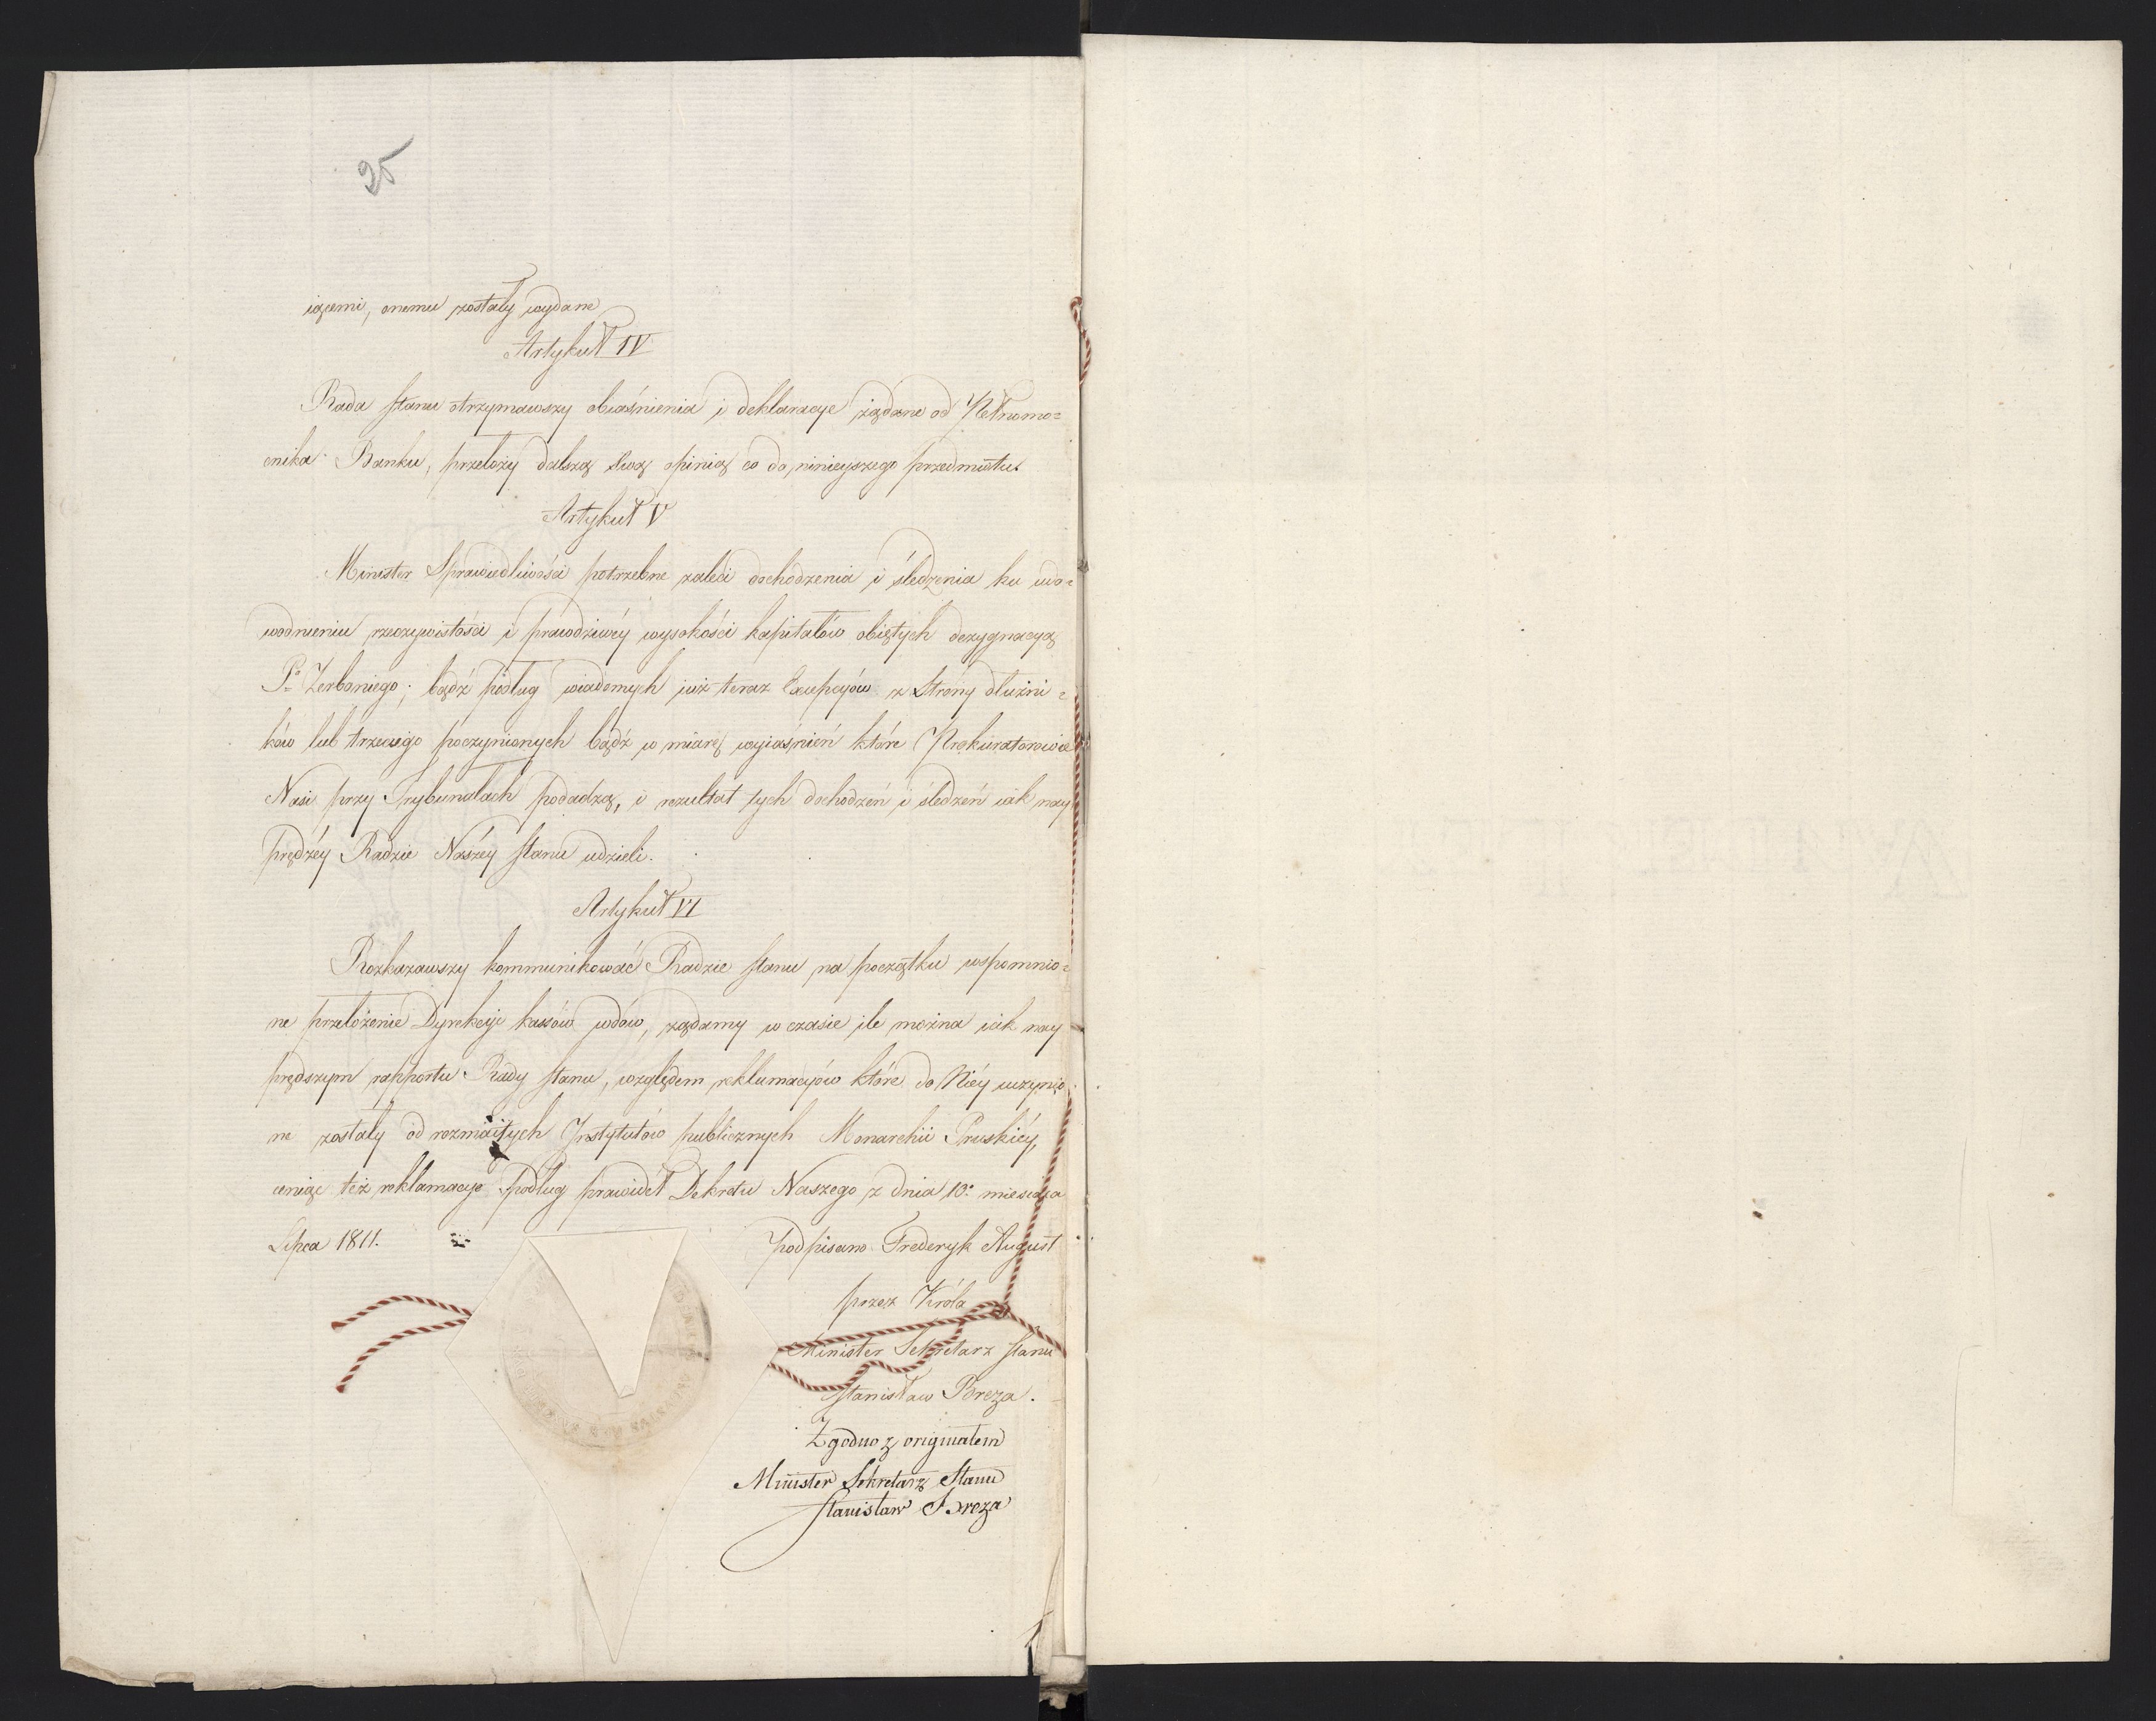 25
iącemi, onemu zostały wydane
Artykuł IV
Rada stanu otrzymawszy obiaśnienia i deklaracye żądane od Pełnomo=
cnika Banku, przełoży dalszą swą opinią co do ninieyszego przedmiotu.
Artykuł V
Minister Sprawiedliwości potrzebne zaleci dochodzenia i śledzenia ku udo=
wodnieniu rzeczywistości i prawdziwéy wysokości kapitałów obiętych dezygnacyą
Pa Zerboniego; bądź podług wiadomych iuż teraz Excepcyów z Strony dłużni=
ków lub trzeciego poczynionych bądź w miarę wyiaśnień które Prokuratorowie
Nasi przy Trybunałach podadzą, i rezultat tych dochodzeń i śledzeń iak nay
prędzéy Radzie Naszéy stanu udzieli.
Artykuł VI
Rozkazawszy kommunikować Radzie stanu na początku wspomnio=
ne przełożenie Dyrekcyi kassów wdów, żądamy w czasie ile można iak nay
prędszym rapportu Rady stanu, względem reklamacyów które do Niéy uczynio
ne zostały od rozmaitych Instytutów publicznych Monarchii Pruskiéy,
ceniąc też reklamacye podług prawideł Dekretu Naszego z dnia 10o miesiąca
Lipca 1811.
Podpisano Frederyk August
przez Króla
Minister Sekretarz stanu
Stanisław Breza.
Zgodno z originałem
Minister Sekretarz Stanu
Stanisław Breza